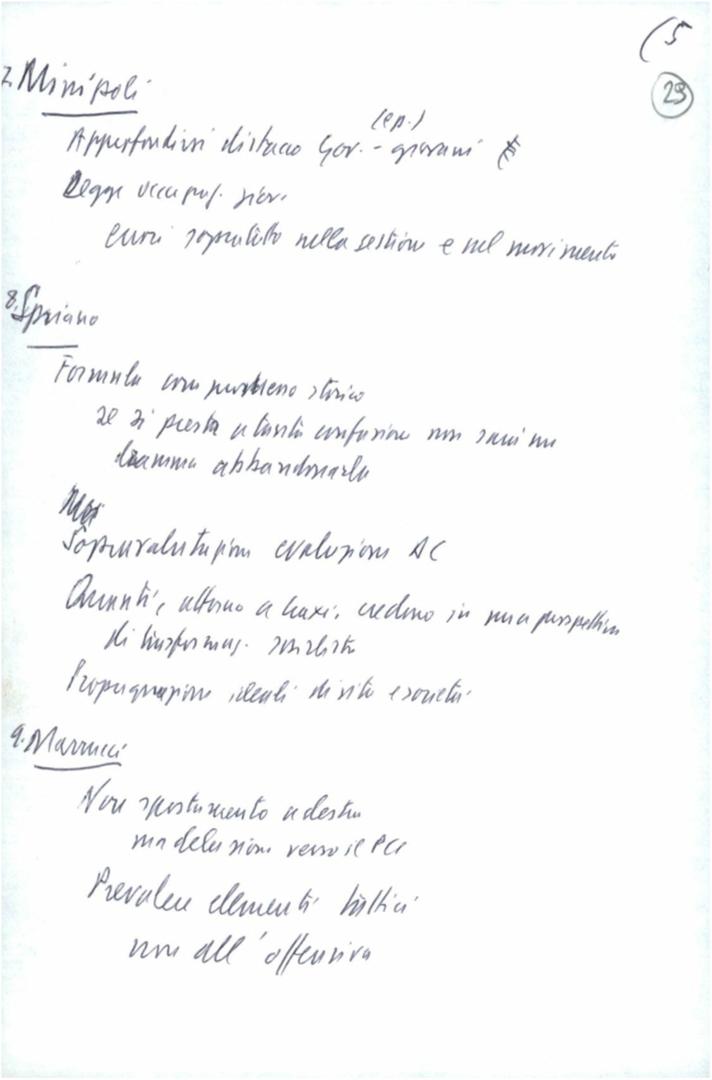 (5
29
7. Minipoli
(ep.)
Approfondirsi distacco Gov. - giovani
Legge occupaz. giov.
Errori soprattutto nella sestione e nel movimento
8. Spriano
Formula compromesso storico
se si presta a tanta confusione non sarà un
dramma abbandonarla
Sopravalutazione evoluzione DC
Quanti, attorno a Craxi, credono in una prospettiva
di trasformaz. socialista
Propugnazione ideali di vita e società
9. Marrucci
Non spostamento a destra
ma delusione verso il PCI
Prevalere elementi tattici
non all'offensiva